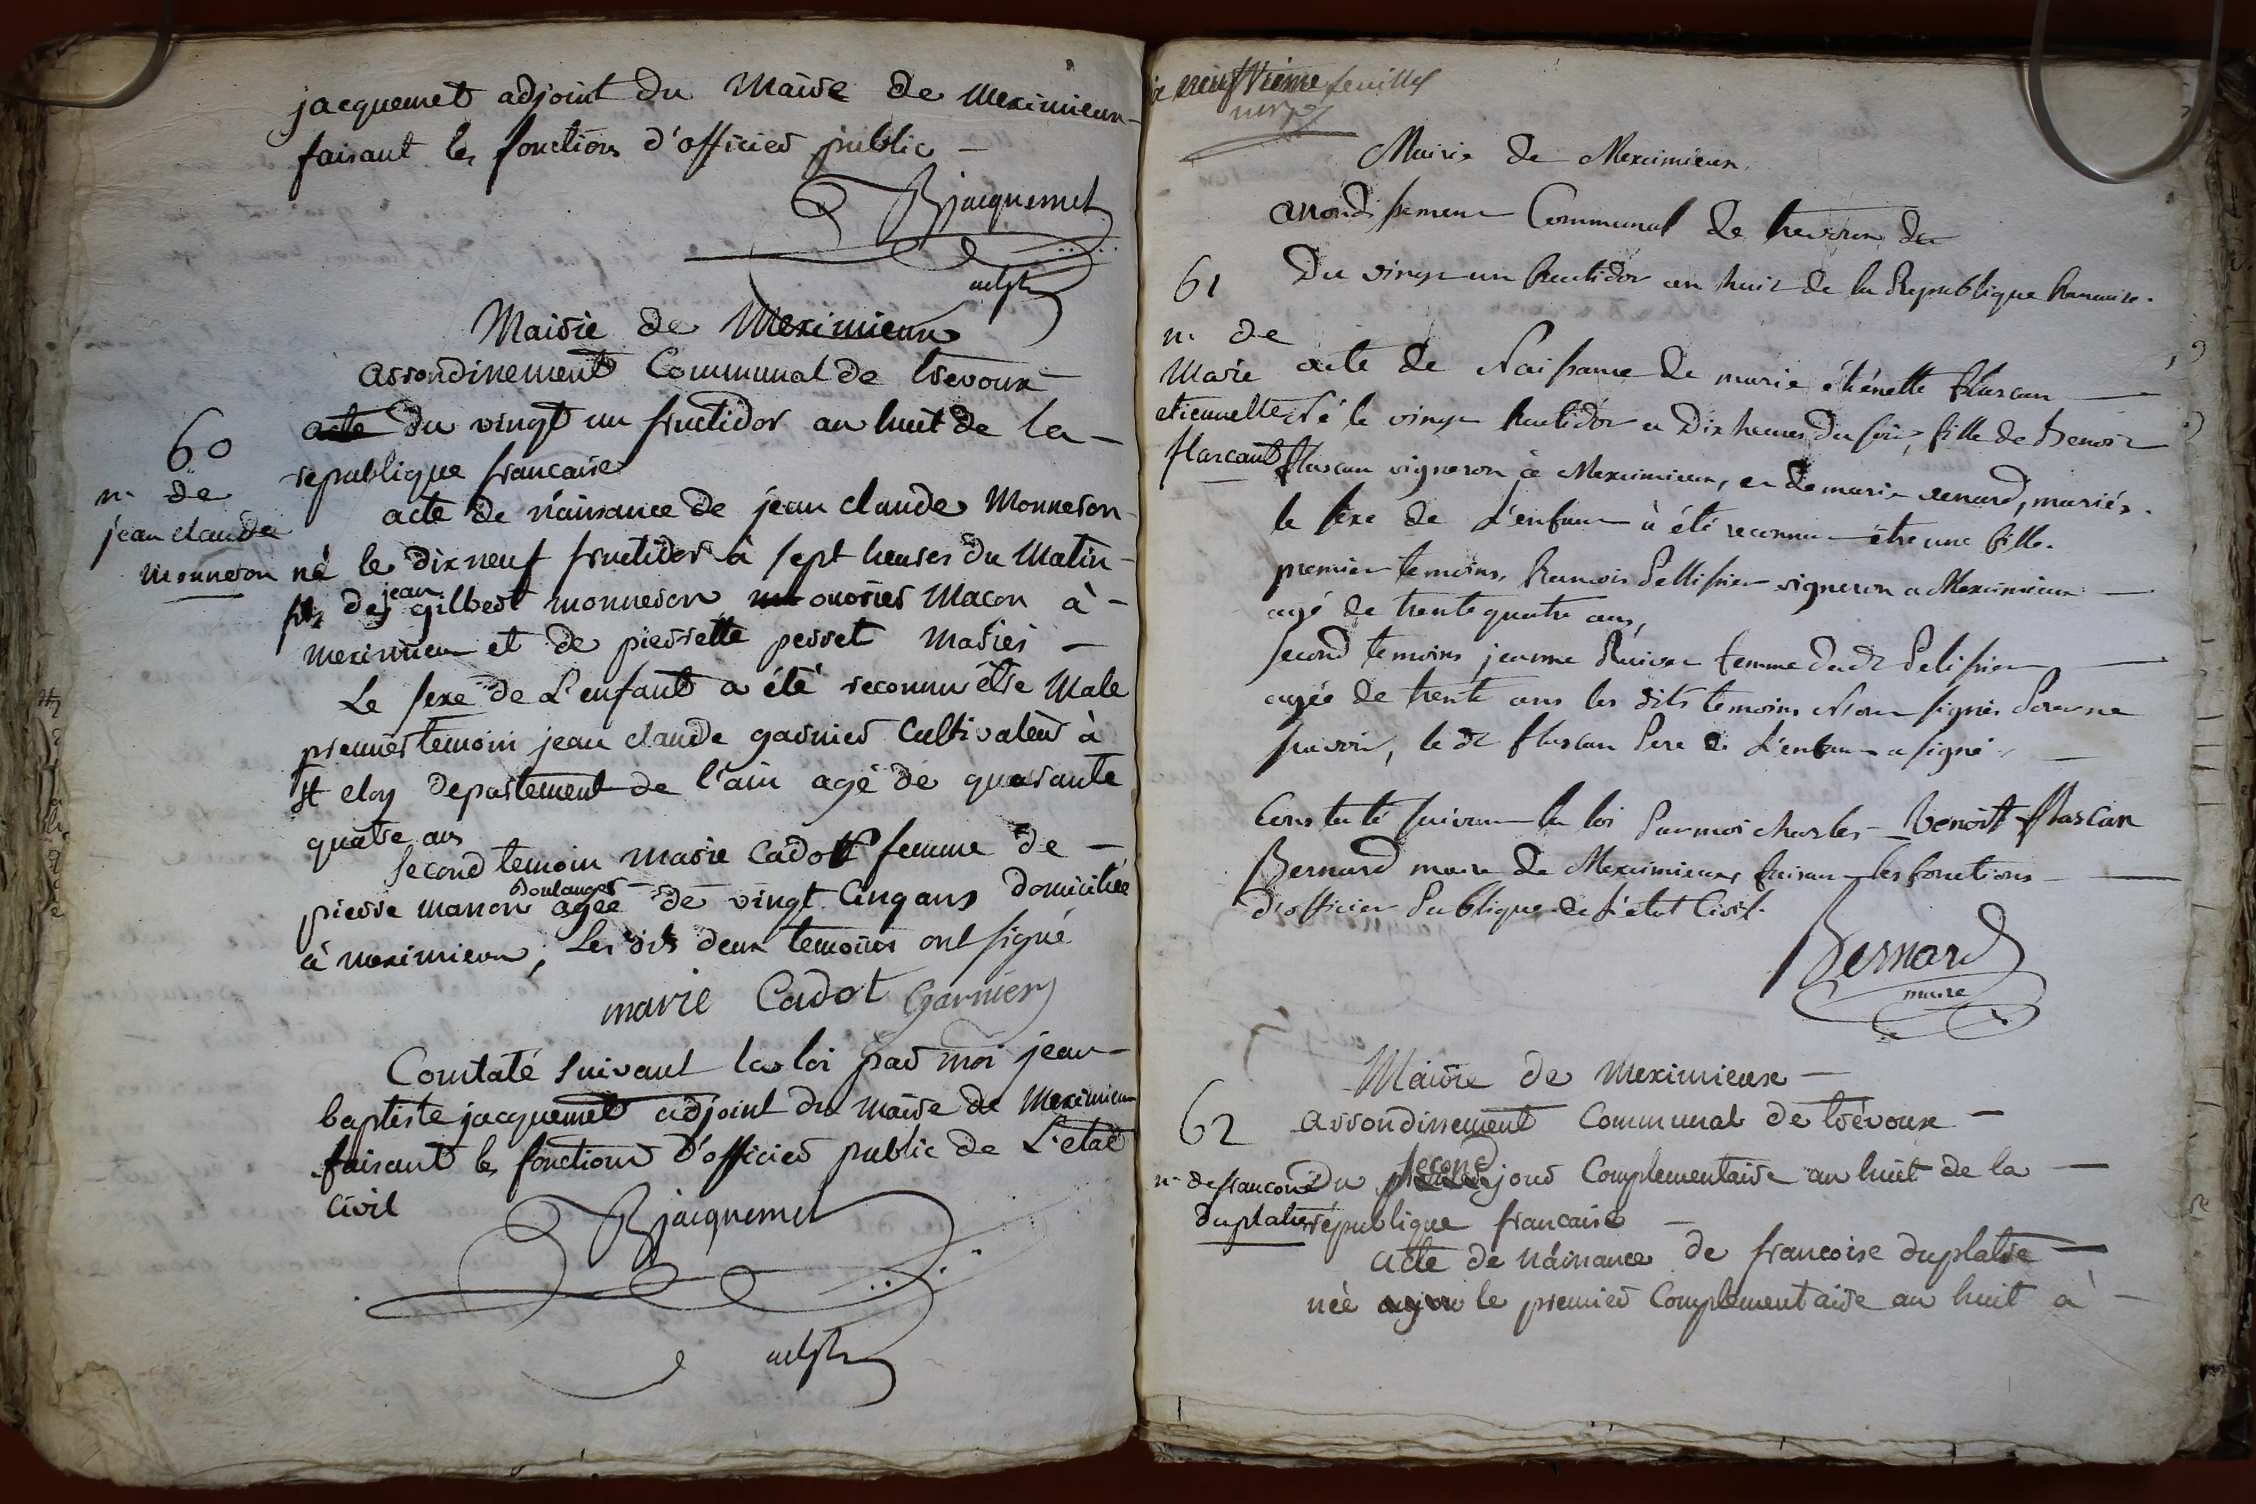 jacquemet adjoint du Maire de Meximieux
faisant les fonctions d'officier public —
Bjacquemet
adjt
Mairie de Meximieux
arrondissement Communal de trevoux
acte du vingt un fructidor an huit de la —
republique francaise
60
n. de
jean claude
Monneron
acte de naissance de jean claude Monneron
né le dix neuf fructidor à sept heures du Matin —
fils de jean gilbert monneron ouvrier Macon à —
meximieux et de pierrette perret Mariés —
Le sexe de L'enfant a été reconnu être Male
premier temoin jean claude garnier Cultivateur à
St eloy departement de l'ain agé de quarante
quatre ans
second temoin Marie Cadot femme de —
pierre manon boulanger agée de vingt cinq ans domiciliée
à meximieux, Les dits deux temoins ont signé
marie Cadot Garnier
Constaté suivant la loi par moi jean
baptiste jacquemet adjoint du maire de Meximieux
faisant les fonctions d'officier public de L'etat
Civil
Bjacquemet
adjt
neufvieme feuillet
Mairie de Meximieux
arrondissement Communal de trevoux du
Du vingt un fructidor an huit de la Republique francaise.
61
n. de
Marie
etiennette
flarcant
acte de Naissance de marie étiénette flascan —
Né le vingt fructidor a Dix heures du soir, fille de Benoit
flascan vigneron à Meximieux, et de marie venard, mariés.
le sexe de L'enfant à été reconnu être une fille.
premier temoins, francois Pellissier vigneron a Meximieux —
agé de trente quatre ans,
second temoins jeanne femme dudt Pelissier —
agée de trente ans les dits temoins N'ont signés Pour ne
savoir, le dt flascan Pere de L'enfant a signé —
Constaté suivant la loi Par moi charles — benoit flascan
Bernard maire de Meximieux faisant les fonctions —
d'officier Publique de L'etat Civil.
Bernard
maire
Mairie de Meximieux —
62
arrondissement Communal de trévoux —
n. de francoise
duplatre
Du second jour Complementaire an huit de la —
république francaise —
acte de naissance de francoise duplatre —
née le premier Complementaire an huit à —